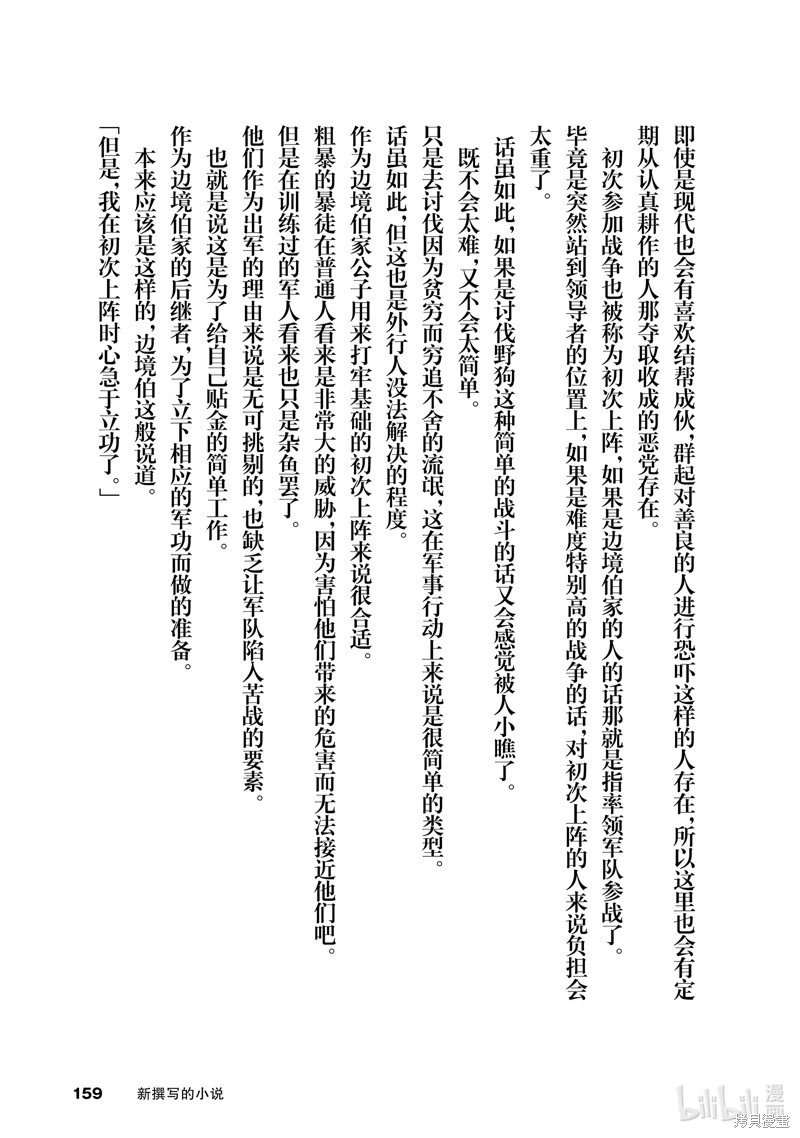 即使是现代也会有喜欢结帮成伙，群起对善良的人进行恐吓这样的人存在，所以这里也会有定
期从认真耕作的人那夺取收成的恶党存在。
初次参加战争也被称为初次上阵，如果是边境伯家的人的话那就是指率领军队参战了。
毕竟是突然站到领导者的位置上，如果是难度特别高的战争的话，对初次上阵的人来说负担会
太重了。
话虽如此，如果是讨伐野狗这种简单的战斗的话又会感觉被人小瞧了。
既不会太难，又不会太简单。
只是去讨伐因为贫穷而穷追不舍的流氓，这在军事行动上来说是很简单的类型。
话虽如此，但这也是外行人没法解决的程度。
作为边境伯家公子用来打牢基础的初次上阵来说很合适。
粗暴的暴徒在普通人看来是非常大的威胁，因为害怕他们带来的危害而无法接近他们吧。
但是在训练过的军人看来也只是杂鱼罢了。
他们作为出军的理由来说是无可挑剔的，也缺乏让军队陷入苦战的要素。
也就是说这是为了给自己贴金的简单工作。
作为边境伯家的后继者，为了立下相应的军功而做的准备。
本来应该是这样的，边境伯这般说道。
「但是，我在初次上阵时心急于立功了。」
159 新撰写的小说
bilibili 漫画
拷贝漫畫